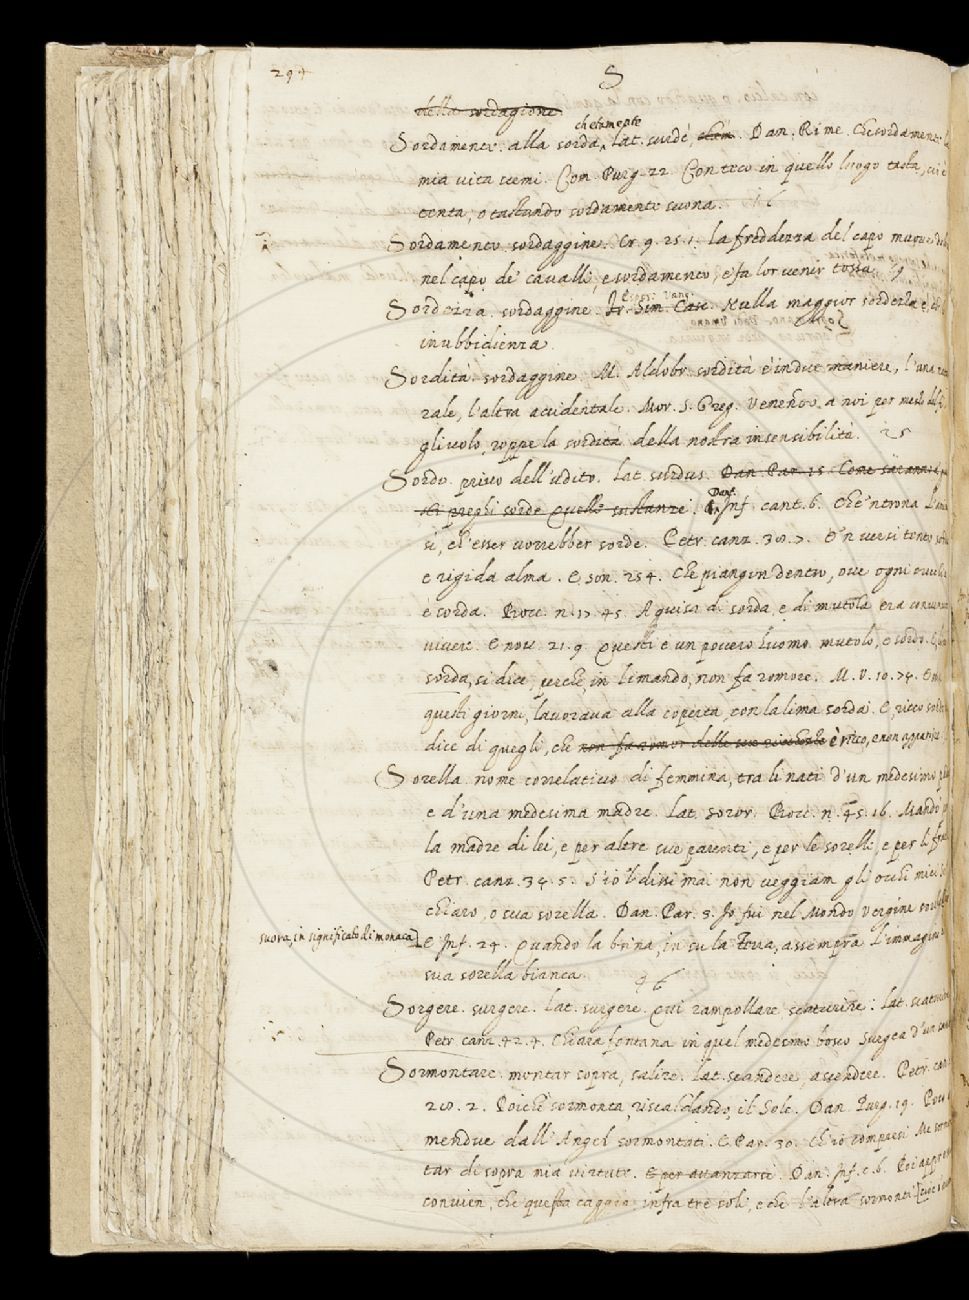 294
S
della sordagione
chetamente
Sordamente. alla sorda, Lat. surdè, Dan. Rime. Che sordamente la
mia vita scemi. Com. Purg. 22. Con teco in quello luogo tasta, cui è
tenta, o tastando sordamente suona.
Sordamento. sordaggine. Cr. 9. 25. 1. la freddezza del capo
nel capo de' cavalli, e sordamento, e fa lor venir tossa
Espos. Vang.
Sordezza. sordaggine. Fr. Sim. Casc. Nulla maggior sordezza è,
inubbidienza.
Sordità. sordaggine. M. Aldobr. sordità è in due maniere, l'una
rale, l'altra accidentale. Mor. S. Greg. Venendo a noi per mezzo del
figlivolo, roppe la sordità della nostra insensibilità. 25
Sordo. privo dell'udito. Lat. surdus. Dan. Par. 15. Come saranno
preghi sorde quelle sustanze.
Dant.
Inf. cant. 6. Che 'ntrona l'
sì, ch'esser vorrebber sorde. Petr. canz. 30. 7. E 'n versi tento
e rigida alma. E son. 254. Che piangon dentro, ove ogni orecchia
è sorda. Bocc. n. 17. 45. A guisa di sorda, e di mutola era
vivere. E nov. 21. 9. Questi è un povero huomo mutolo, e sordo.
sorda, si dice, perchè, in limando, non fa romore. M. V. 10. 74.
questi giorni, lavorava alla coperta, con la lima sorda. E, ricco
dice di quegli, che non fa romor delle sue ricchezze è ricco, e non apparisce
Sorella. nome correlativo di femmina, tra li nati d'un medesimo
e d'una medesima madre. Lat. soror. Bocc. n. 45. 16. Mandò
la madre di lei, e per altre sue parenti, e per le sorelle e per li
Petr. canz. 34. 5. S'io 'l dissi mai non veggian gli occhi miei
chiaro, o sua sorella. Dan. Par. 3. Io fui nel Mondo vergine
suora, in significato di monaca
E Inf. 24. Quando la brina, in su la terra, assempra l'immagine
sua sorella bianca.
Sorgere. surgere. Lat. surgere. qui rampollare scaturire: Lat.
Petr. canz. 42. 4. Chiara fontana in quel medesmo bosco Surgea d'un
Sormontare. montar sopra, salire. Lat. scandere, ascendere. Petr.
20. 2. Poichè sormonta, riscaldando, il Sole. Dan. Purg. 19.
mendue dall'Angel sormontati. E Par. 30. Ch'io compresi Me
tar di sopra mia virtute. E per avanzarsi. Dan. Inf. c. 6. Poi appresso
convien, che questa caggia infra tre soli, e che l'altra sormonti